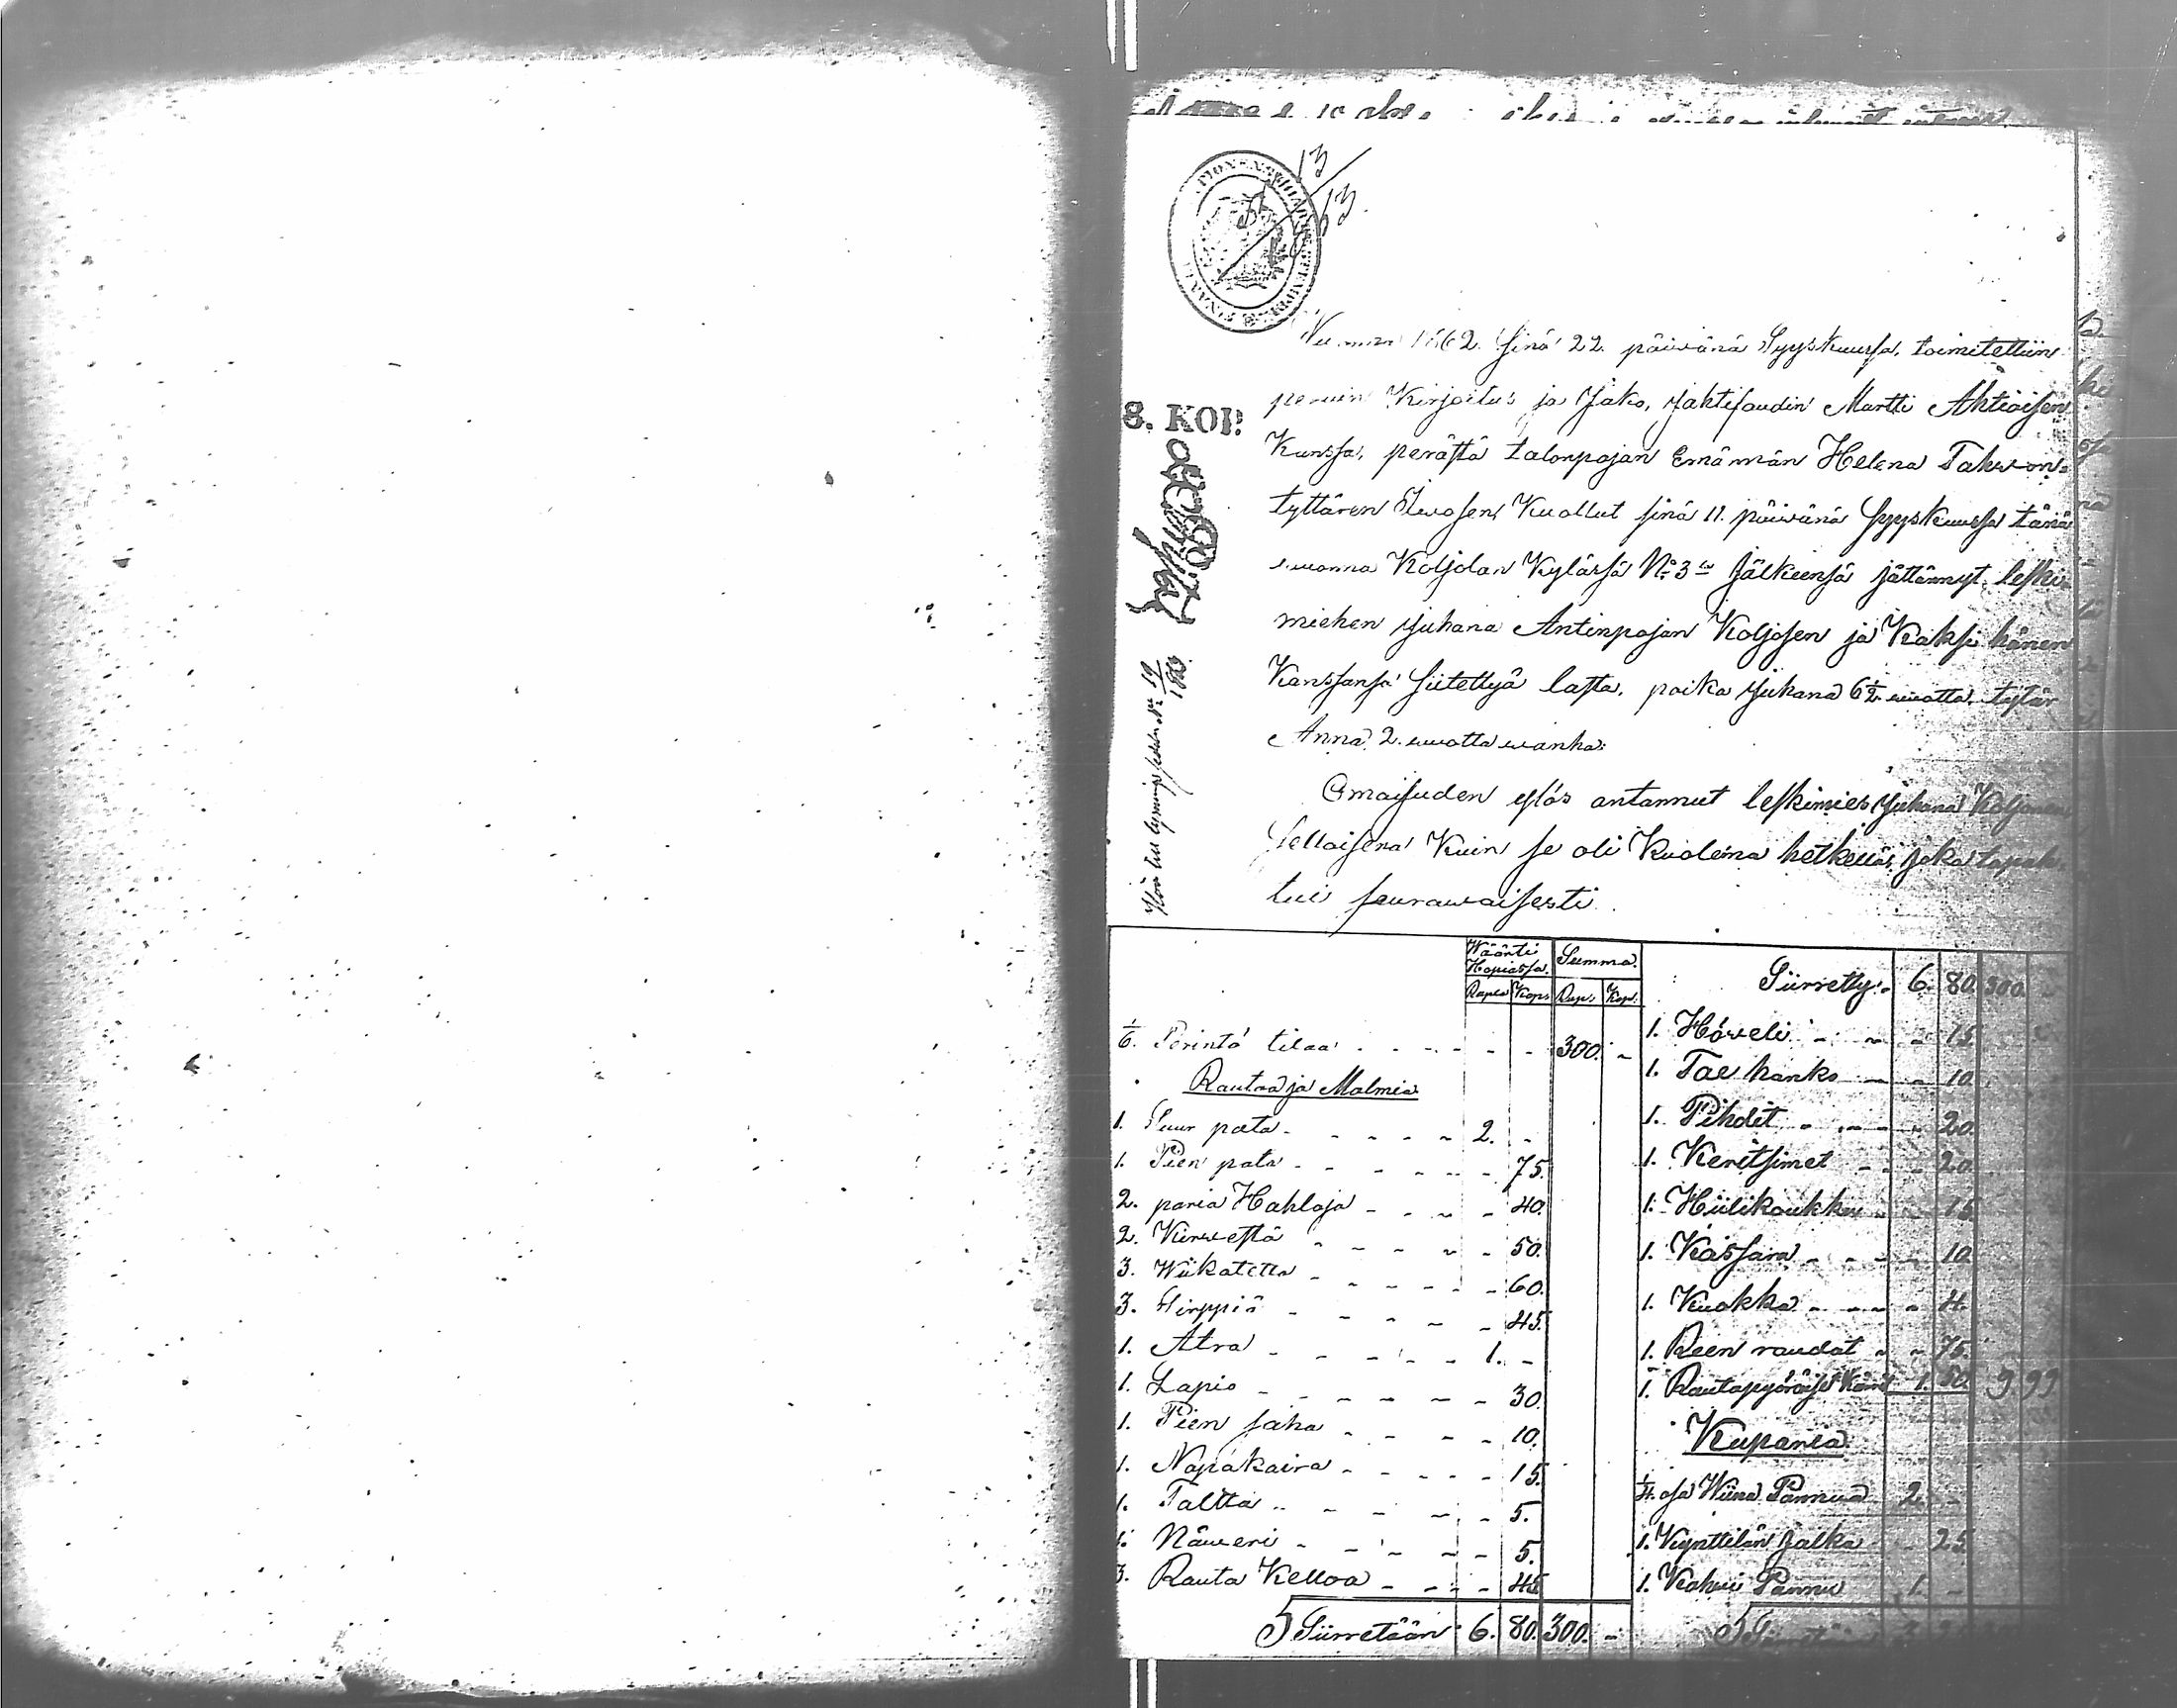 13
13.
8. KOP.
Wuonna 1862. sinä 22. päiwänä Syyskuussa, toimitettiin
peruin Kirjoitus ja Jako, Jahtifaudin Martti Ahtiaisen
Kanssa, perästä talonpojan Emännän Helena Takwon-
tyttären Iivosen, Kuollut sinä 11. päiwänä Syyskuussa tänä
wuonna Koljolan Kylässä No 3 Jälkeensä jättännyt leski-
miehen Juhana Antinpojan Koljosen ja Kaksi hänen
Kanssansa siitettyä lasta, poika Juhana 6½ wuotta, tytär
Anna 2. wuotta wanha.
Omaisuden ylös antannut leskimies Juhana Koljonen
Sellaisena Kuin se oli Kuolema hetkellä, joka tapah-
tui seurawaisesti
Wäärti Hopiassa. Summa.
Rupla Kop. Rup. Kop.
1/6. Perintö tilaa - - - 300. -
Rautaa ja Malmia
1. Suur pata - - - 2. -
1. Pien pata - - - 75.
2. paria Hahloja - - - 40.
2. Kirwestä - - - 50.
3. Wiikatetta - - - 60.
3. Sirppiä - - - 45.
1. Atra - - - 1. -
1. Lapio - - - 30.
1. Pien saha - - - 10.
1. Napakaira - - - 15.
1. Taltta - - - 5.
1. Näweri - - - 5.
3. Rauta Kelloa - - - 45
Siirretään 6. 80. 300. -
Siirretty 6. 80. 300. -
1. Höweli - - - 15.
1. Tae hanko - - - 10.
1. Pihdit - - - 20.
1. Keritsimet - - - 20.
1. Hiilikoukku - - - 15
1. Kassara - - - 10
1. Kuokka - - - 4.
1. Reen raudat - - 75.
1. Rautapyöräiset 1. 50. 9 99
Kuparia
1/4. osa Wiina Pannua 2. -
1. Kynttilän Jalka - 25
1. Kahwi Pannu 1. -
Siirretään 3.